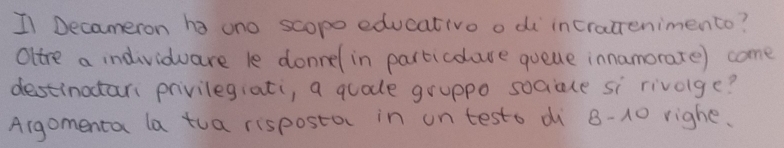 Il Decameron ha uno scopo educativo o di intrattenimento?
Oltre a individuare le donne (in particolare quelle innamorate) come
destinatari privilegiati, a quale gruppo sociale si rivolge?
Argomenta la tua risposta in un testo di 8-10 righe.